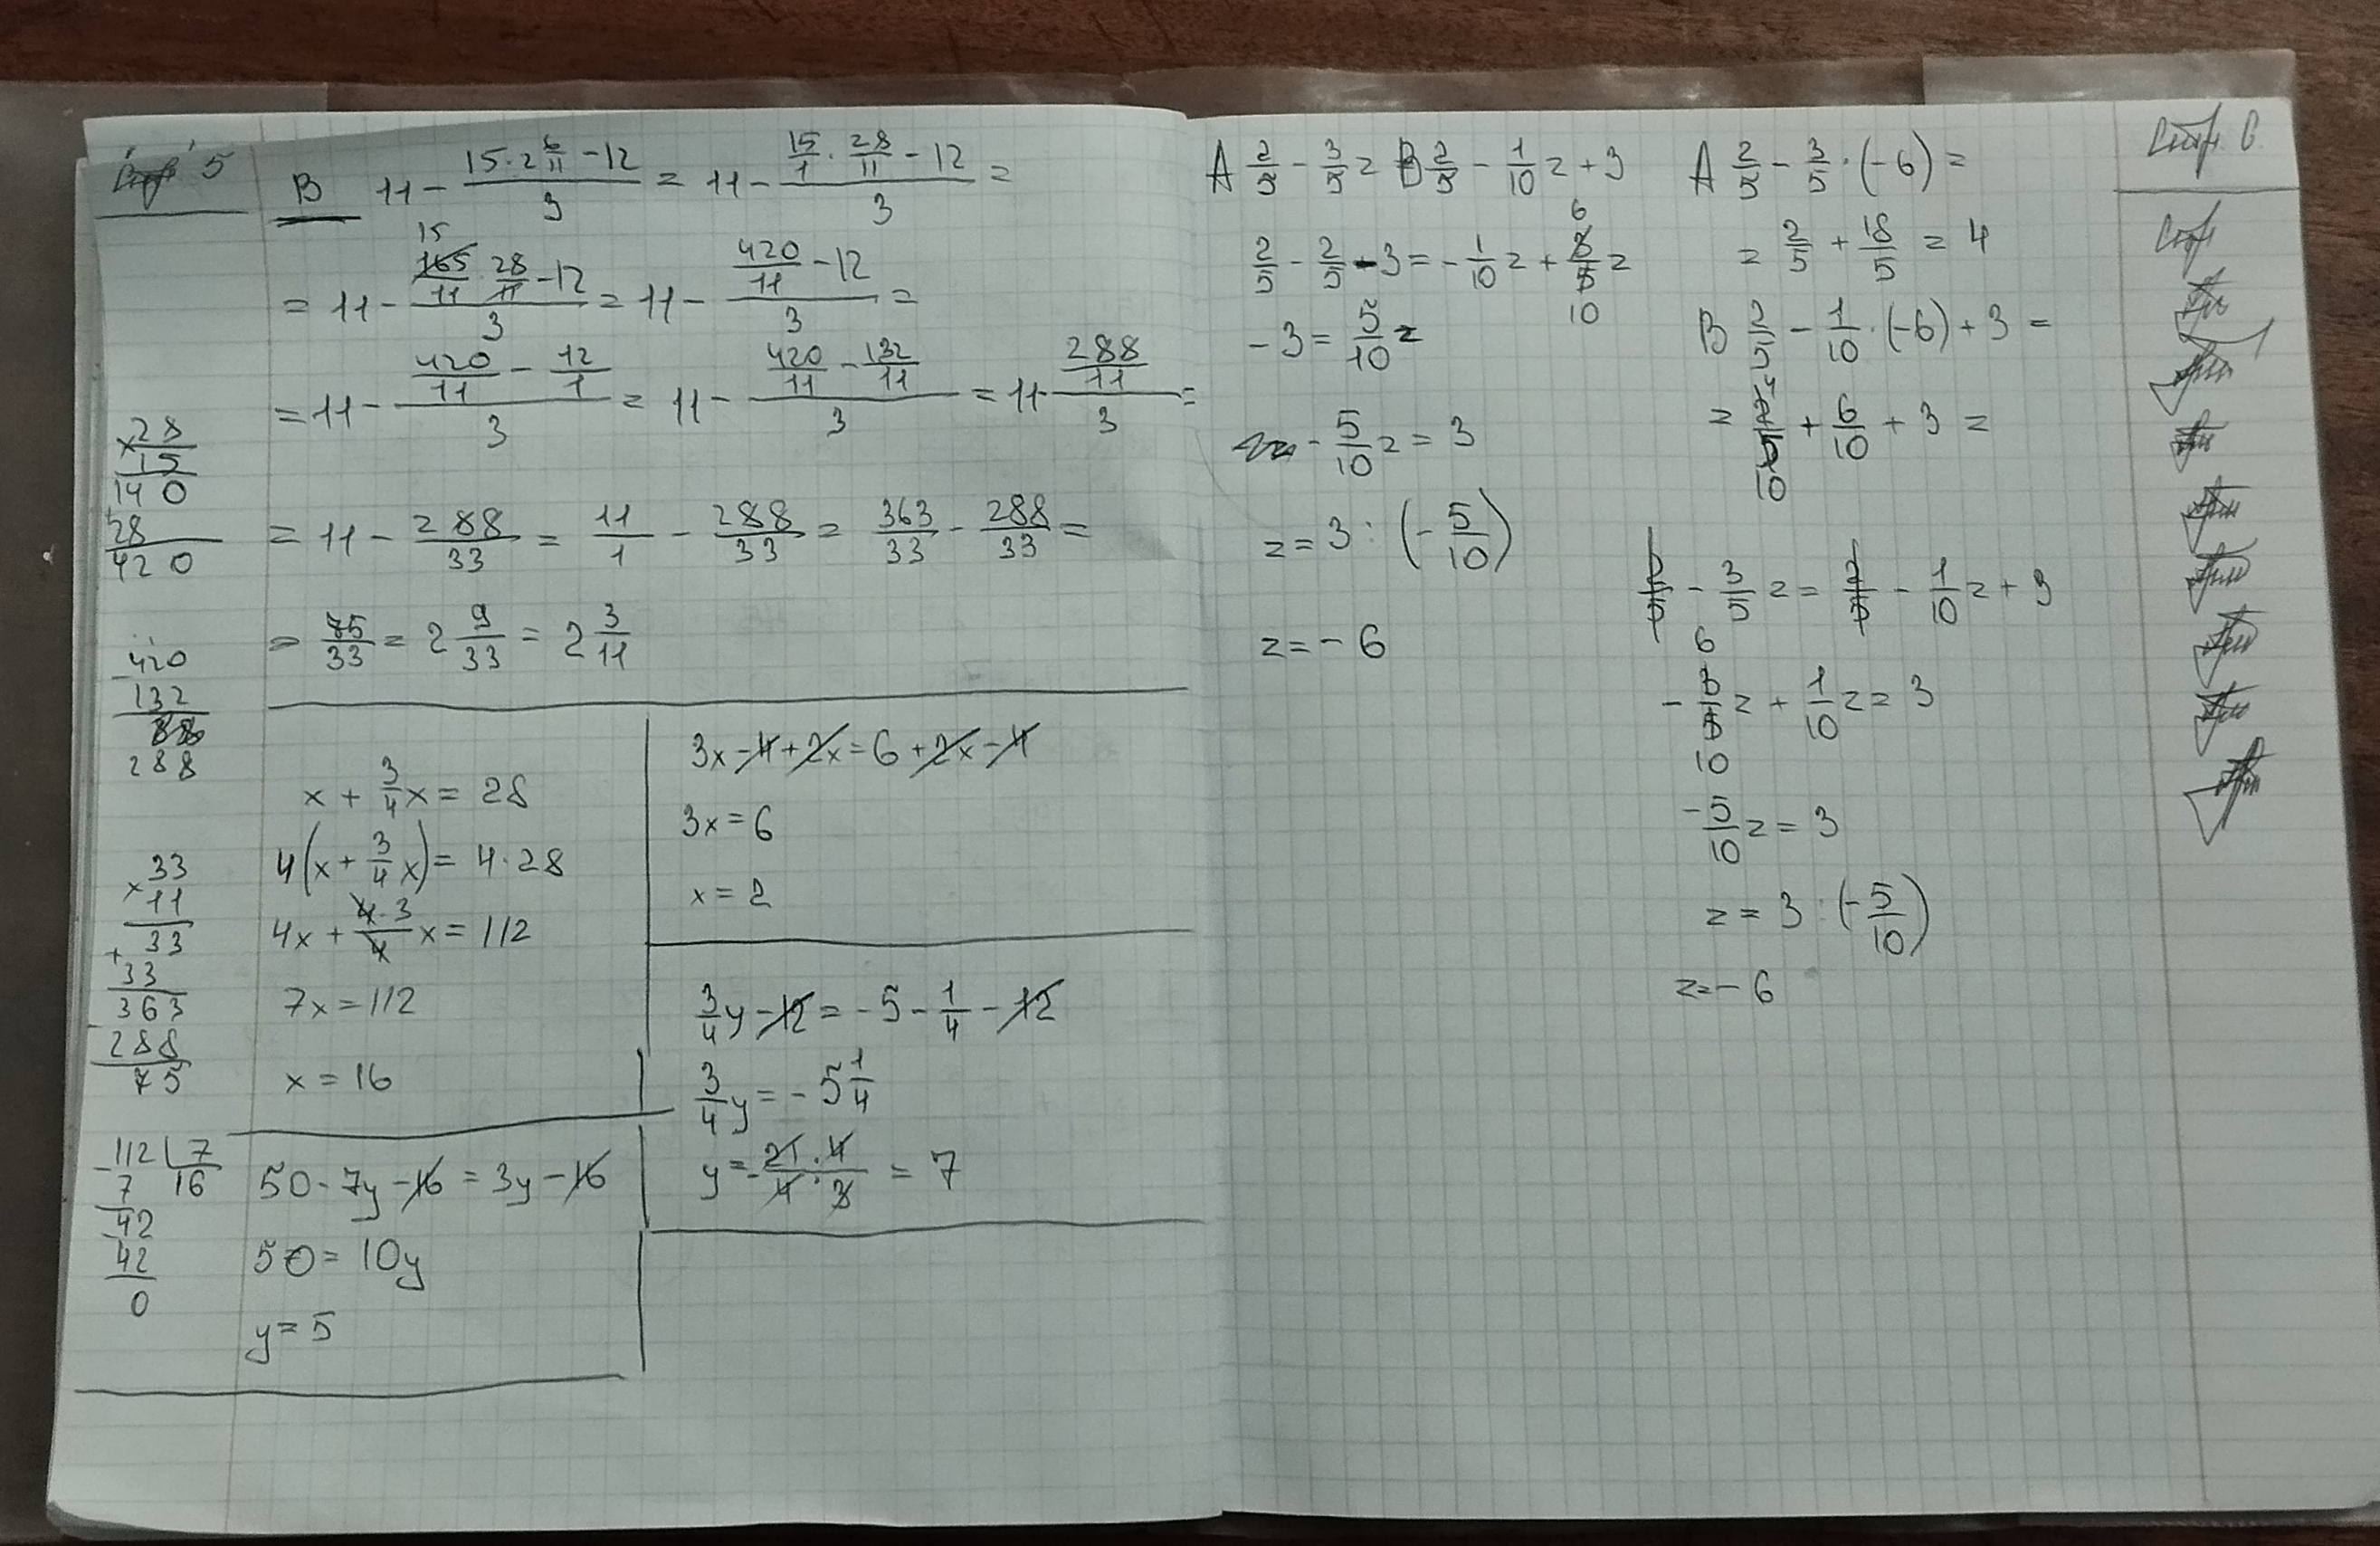 5
B 11 - (15 · 2 6/11 - 12)/3 = 11 - (15/1 · 28/11 - 12)/3 =
15
= 11 - (165/11 · 28/11 - 12)/3 = 11 - (420/11 - 12)/3 =
= 11 - (420/11 - 12/1)/3 = 11 - (420/11 - 132/11)/3 = 11 - (288/11)/3 =
= 11 - 288/33 = 11/1 - 288/33 = 363/33 - 288/33 =
= 75/33 = 2 9/33 = 2 3/11
×28
15
140
28
420
-420
132
288
×33
11
+33
33
363
-288
75
-112 | 7
7 16
-42
42
0
x + 3/4x = 28
4(x + 3/4x) = 4 · 28
4x + 4·3/4x = 112
7x = 112
x = 16
50 - 7y - 16 = 3y - 16
50 = 10y
y = 5
3x - 4 + 2x = 6 + 2x - 4
3x = 6
x = 2
3/4y - 12 = - 5 - 1/4 - 12
3/4y = - 5 1/4
y = - 21·4/4·3 = 7
A 2/5 - 3/5z B 2/5 - 1/10z + 3
6
2/5 - 2/5 - 3 = - 1/10z + 3/5z
10
- 3 = 5/10z
- 5/10z = 3
z = 3 : (- 5/10)
z = - 6
A 2/5 - 3/5 · (-6) =
= 2/5 + 18/5 = 4
B 2/5 - 1/10 · (-6) + 3 =
= 4/10 + 6/10 + 3 =
2/5 - 3/5z = 2/5 - 1/10z + 3
6
- 3/5z + 1/10z = 3
10
-5/10z = 3
z = 3 : (- 5/10)
z = - 6